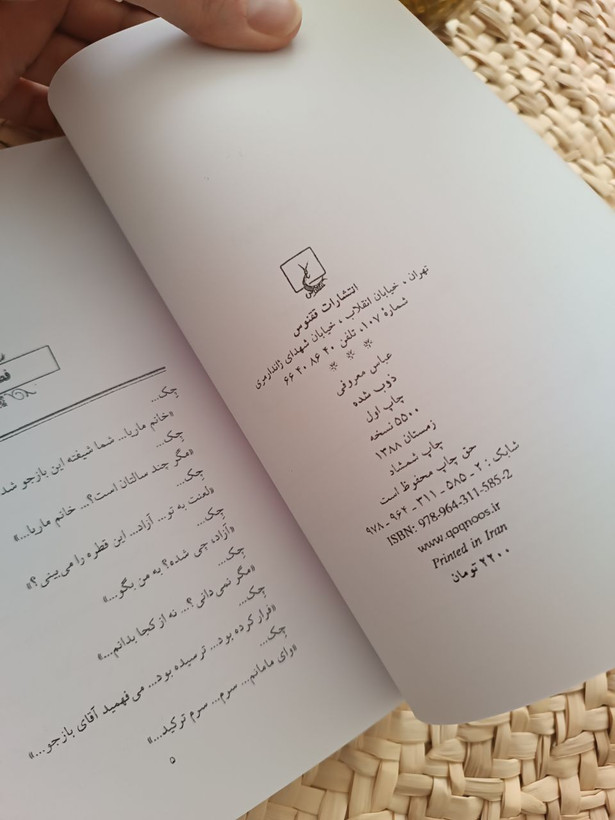 انتشارات ققنوس
تهران، خیابان انقلاب، خیابان شهدای ژاندارمری
شمارهٔ ۱۰۷، تلفن ۴۰ ۸۶ ۴۰ ۶۶
* * *
عباس معروفی
ذوب شده
چاپ اول
۵۵۰۰ نسخه
زمستان ۱۳۸۸
چاپ شمشاد
حق چاپ محفوظ است
شابک: ۲ - ۵۸۵ - ۳۱۱ - ۹۶۴ - ۹۷۸
ISBN: 978-964-311-585-2
www.qoqnoos.ir
Printed in Iran
۲۲۰۰ تومان
چک...
«خانم ماریا... شما شیفته این بازجو شد
چک...
«مگر چند سالتان است؟... خانم ماریا...»
چک...
«لعنت به تو... آزاد... این قطره را می‌بینی؟»
چک...
«آزاده چی شده؟ به من بگو...»
چک...
«مگر نمی‌دانی؟... نه از کجا بدانم...»
چک...
«فرار کرده بود... ترسیده بود... می‌فهمید آقای بازجو...»
چک...
«وای مامانم... سرم... سرم ترکید...»
۵